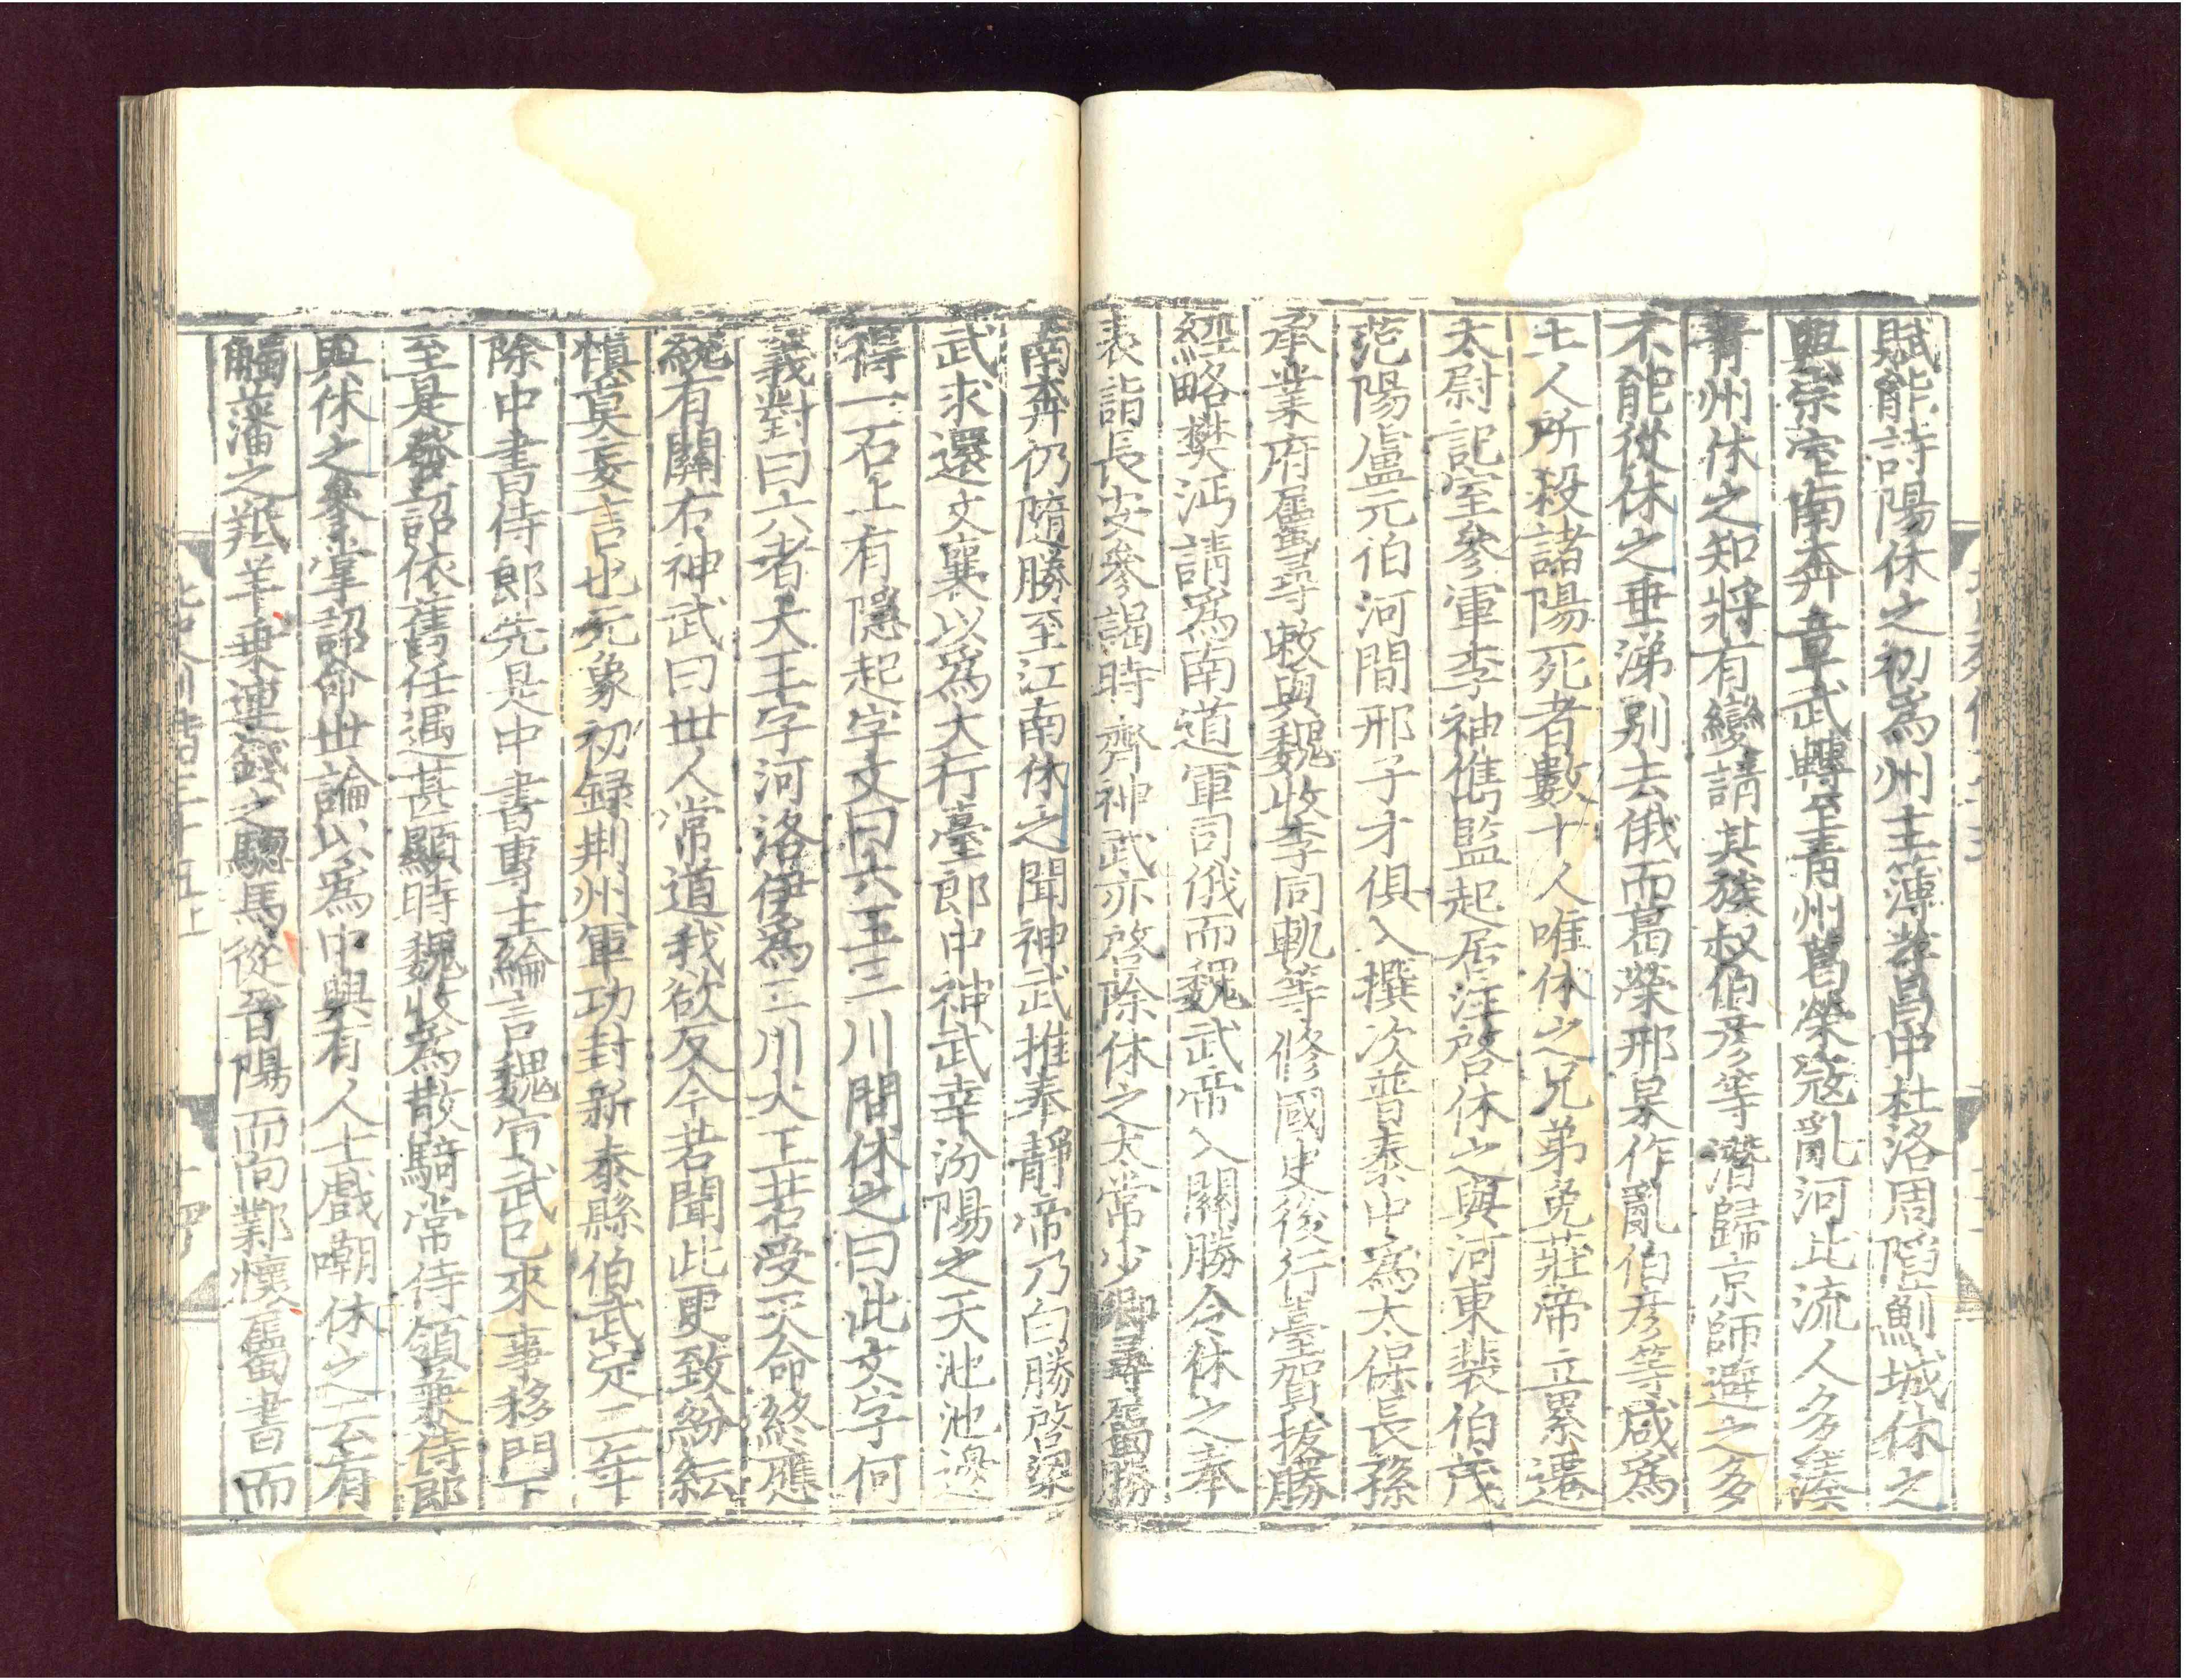 賦能詩陽休之初爲州主簿孝昌中杜洛周陷薊城休之
與宗室南奔章武轉至青州葛榮寇亂河北流人多湊
青州休之知將有變請其族叔伯彥等潛歸京師避之多
不能從休之垂涕別去俄而葛榮邢杲作亂伯彥等咸爲
土人所殺諸陽死者數十人唯休之兄弟免莊帝立累遷
太尉記室參軍李神儁監起居注啓休之與河東裴伯茂
范陽盧元伯河間邢子才俱入撰次普泰中爲太保長孫
承業府屬尋敕與魏收李同軌等修國史後行臺賀拔勝
經略樊沔請爲南道軍司俄而魏武帝入關勝令休之奉
表詣長安參謁時齊神武亦啓除休之太常少卿尋屬勝
南奔仍隨勝至江南休之聞神武推奉靜帝乃白勝啓梁
武求還文襄以爲大行臺郎中神武幸汾陽之天池池邊
得一石上有隱起字文曰六王三川間休之曰此文字何
義對曰六者大王字河洛伊爲三川大王若受天命終應
統有關右神武曰世人常道我欲反今若聞此更致紛紜
愼莫妄言也元象初録荆州軍功封新泰縣伯武定二年
除中書侍郎先是中書專主綸言魏宣武已來事移門下
至是發詔依舊任遇甚顯時魏收爲散騎常侍領兼侍郎
與休之參掌詔命世論以爲中興有人士戲嘲休之云有
觸藩之羝羊乗連錢之驄馬從晉陽而向鄴懷屬書而